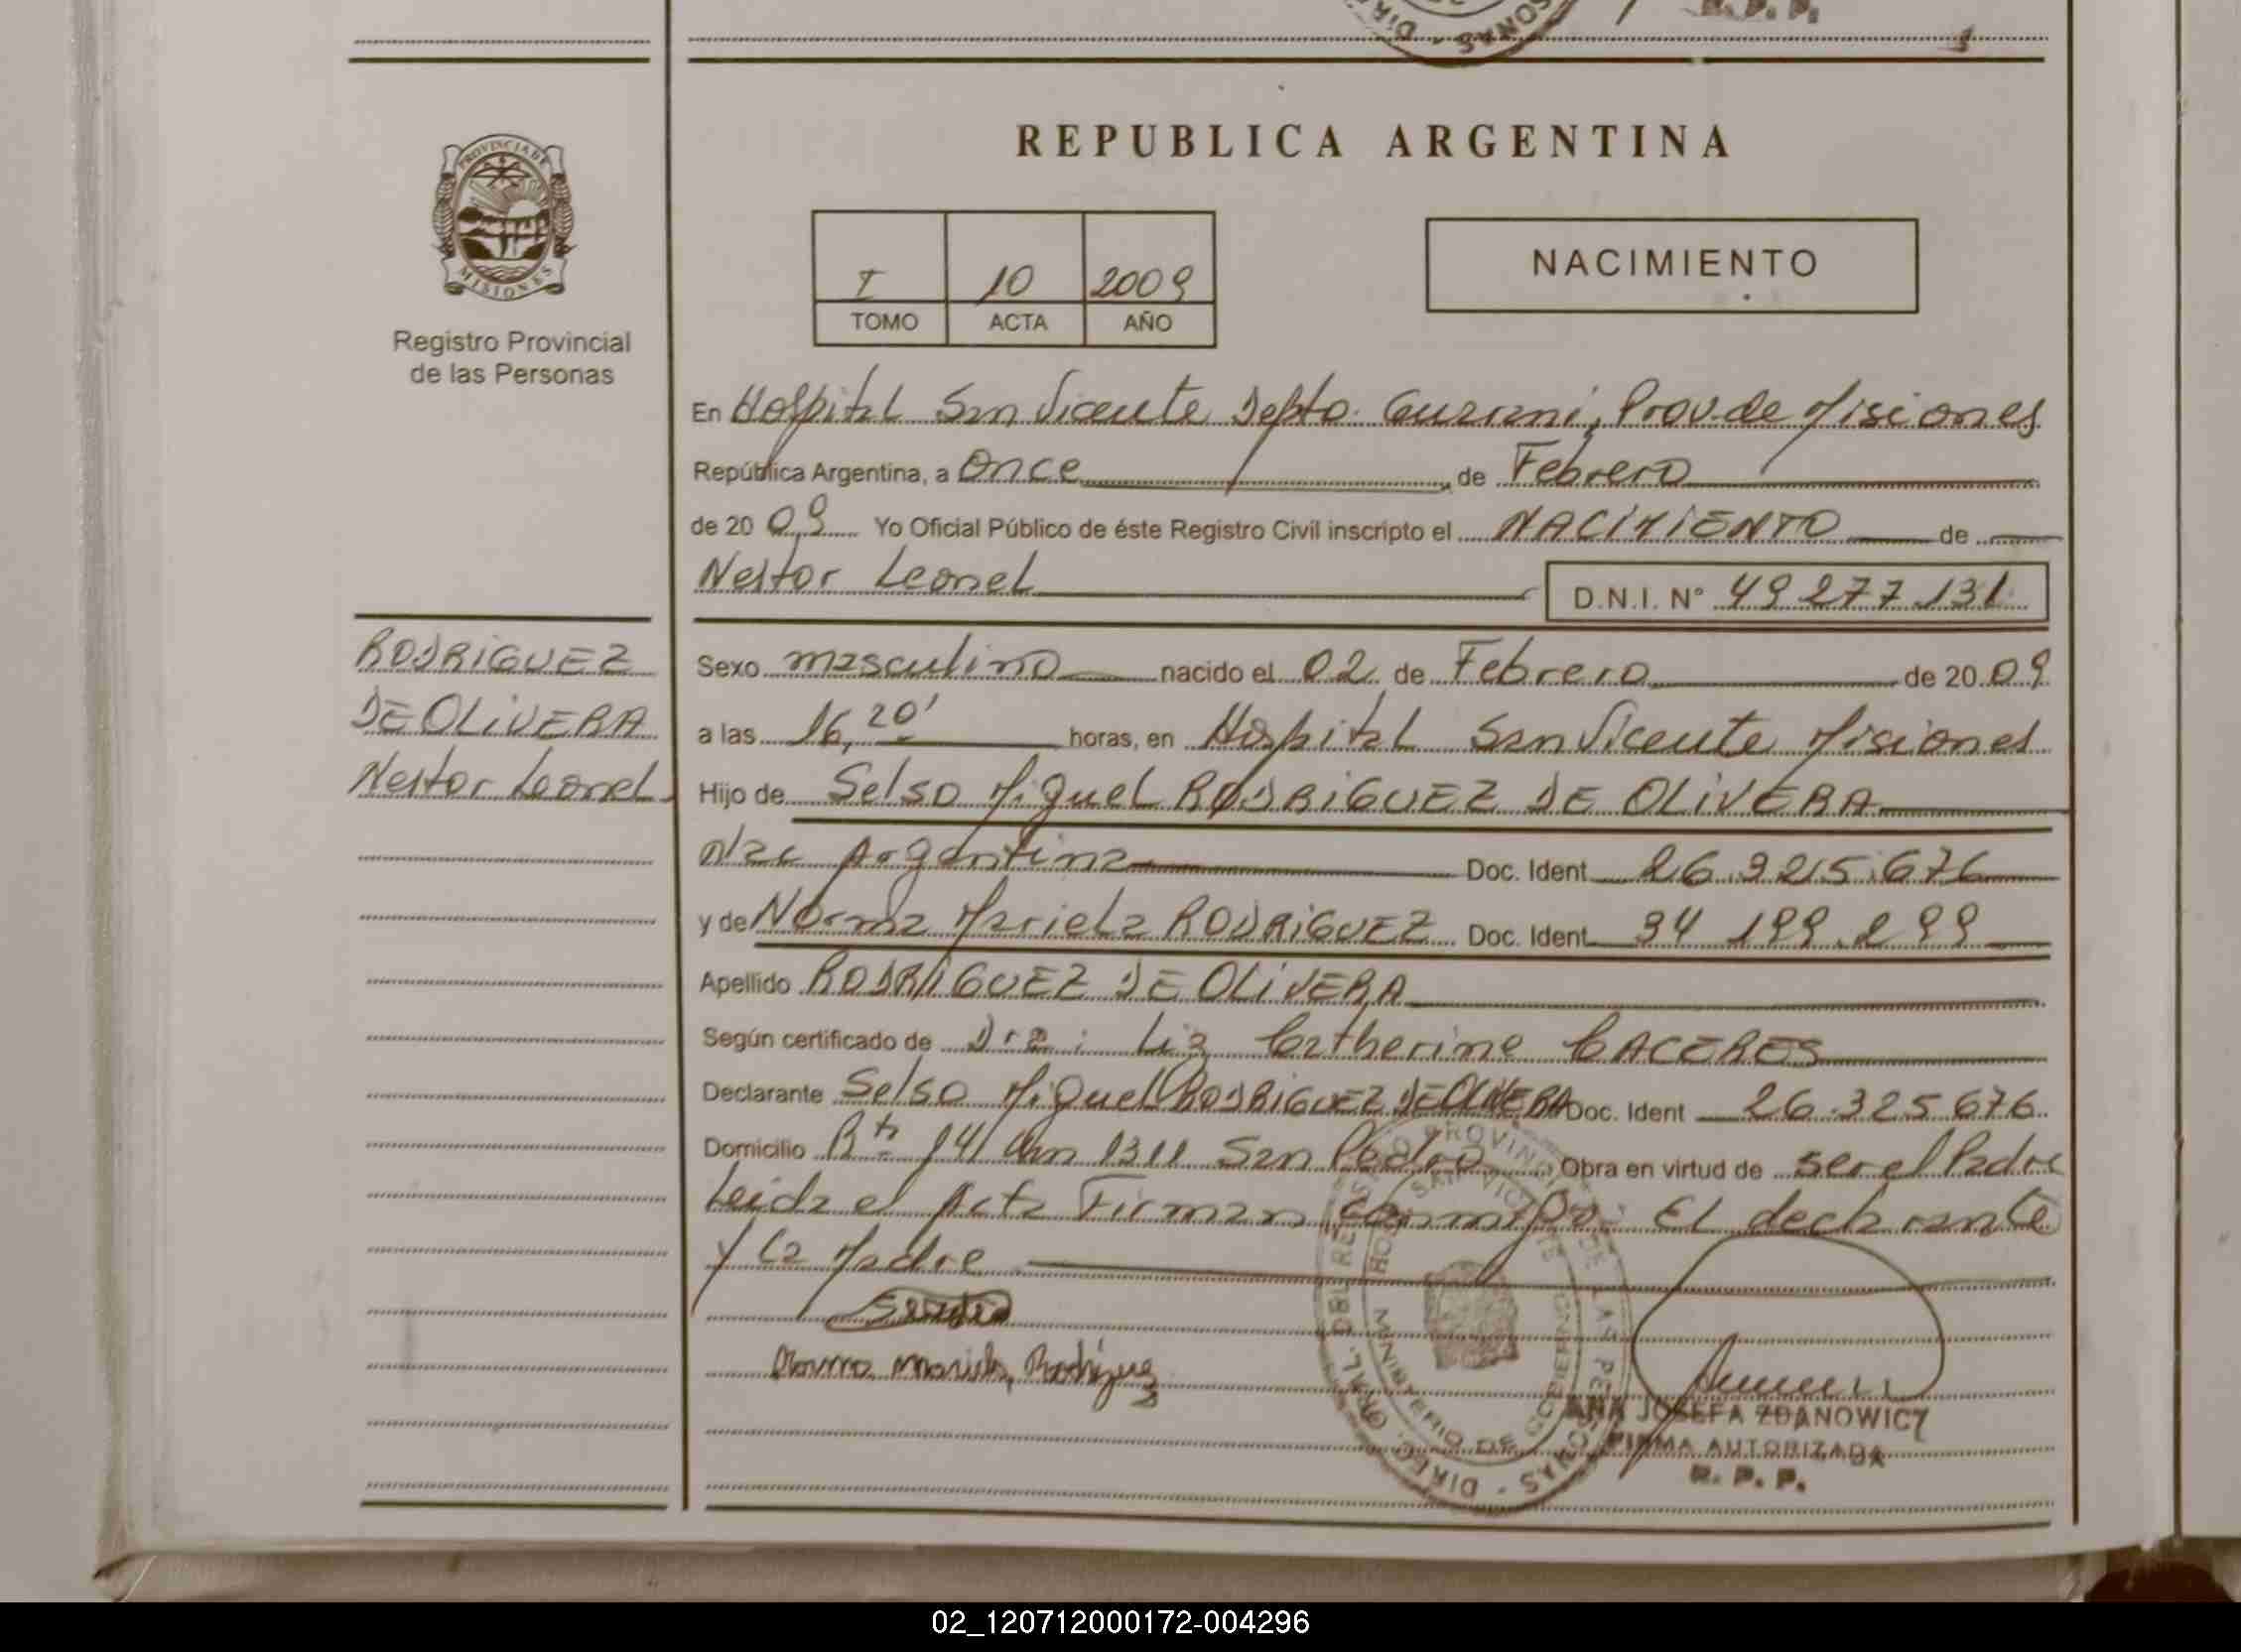 REPUBLICA ARGENTINA
PROVINCIA DE
MISIONES
Registro Provincial
de las Personas
I 10 2009
TOMO ACTA AÑO
NACIMIENTO
En Hospital San Vicente Depto. Guarani, Prov. de Misiones
República Argentina, a Once de Febrero
de 20 09 Yo Oficial Público de éste Registro Civil inscripto el NACIMIENTO de
Nestor Leonel D.N.I. N° 49 277 131
RODRIGUEZ
DE OLIVERA
Nestor Leonel
Sexo masculino nacido el 02 de Febrero de 20 09
a las 16,20' horas, en Hospital San Vicente Misiones
Hijo de Selso Miguel RODRIGUEZ DE OLIVERA
Nac Argentina Doc. Ident 26.325.676
y de Norma Mariela RODRIGUEZ Doc. Ident 34 199.299
Apellido RODRIGUEZ DE OLIVERA
Según certificado de Dra: Liz Catherine CACERES
Declarante Selso Miguel RODRIGUEZ DE OLIVERA Doc. Ident 26.325.676
Domicilio Rta 14 km 1311 San Pedro Obra en virtud de ser el Padre
Leida el Acta Firman conmigo: El declarante
y la Madre
Norma Mariela Rodriguez
DIREC. GRAL. DEL REGISTRO PROVINCIAL DE LAS PERSONAS
HOSP. SAN VICENTE
MINISTERIO DE GOBIERNO
ANA JOSEFA ZDANOWICZ
FIRMA AUTORIZADA
R. P. P.
02_120712000172-004296